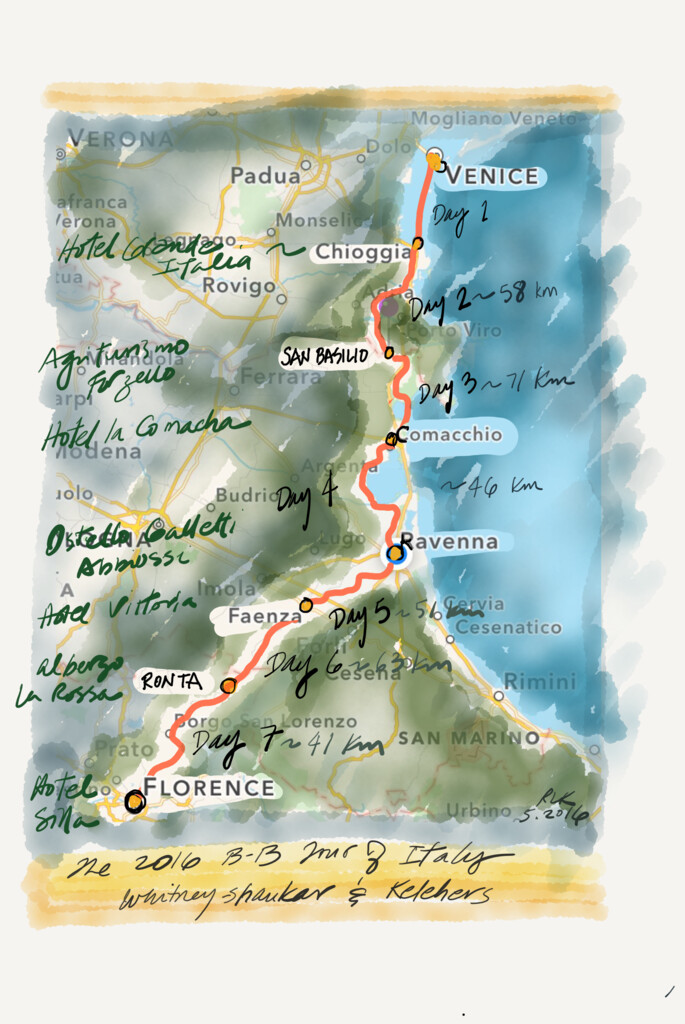 Mogliano Veneto
VERONA
Dolo
Padua
VENICE
afranca
Verona
Monselic
Day 1
Legnago
Hotel Grande
Italia ~
Chioggia
Rovigo
Adria
Day 2 ~ 58 km
Porto Viro
SAN BASILIO
Agriturizmo
Forzello
Mirandola
Ferrara
Day 3 ~ 71 Km
arpi
Hotel la Comacha
Comacchio
Modena
Argenta
~46 Km
Day 4
uolo
Budrio
Ostello Galletti
Abbmossi
Lugo
Ravenna
A
Imola
Hotel Vittoria
Faenza
Day 5 ~ 56 km
Cervia
Cesenatico
Forlì
Day 6 ~ 63 Km
Cesena
albergo
La Rossa
RONTA
Rimini
Borgo San Lorenzo
Prato
Day 7 ~ 41 Km
SAN MARINO
Hotel
Silla
FLORENCE
Urbino
RLK
5.2016
The 2016 B-B Tour of Italy
Whitney Shaukar & Kelehers